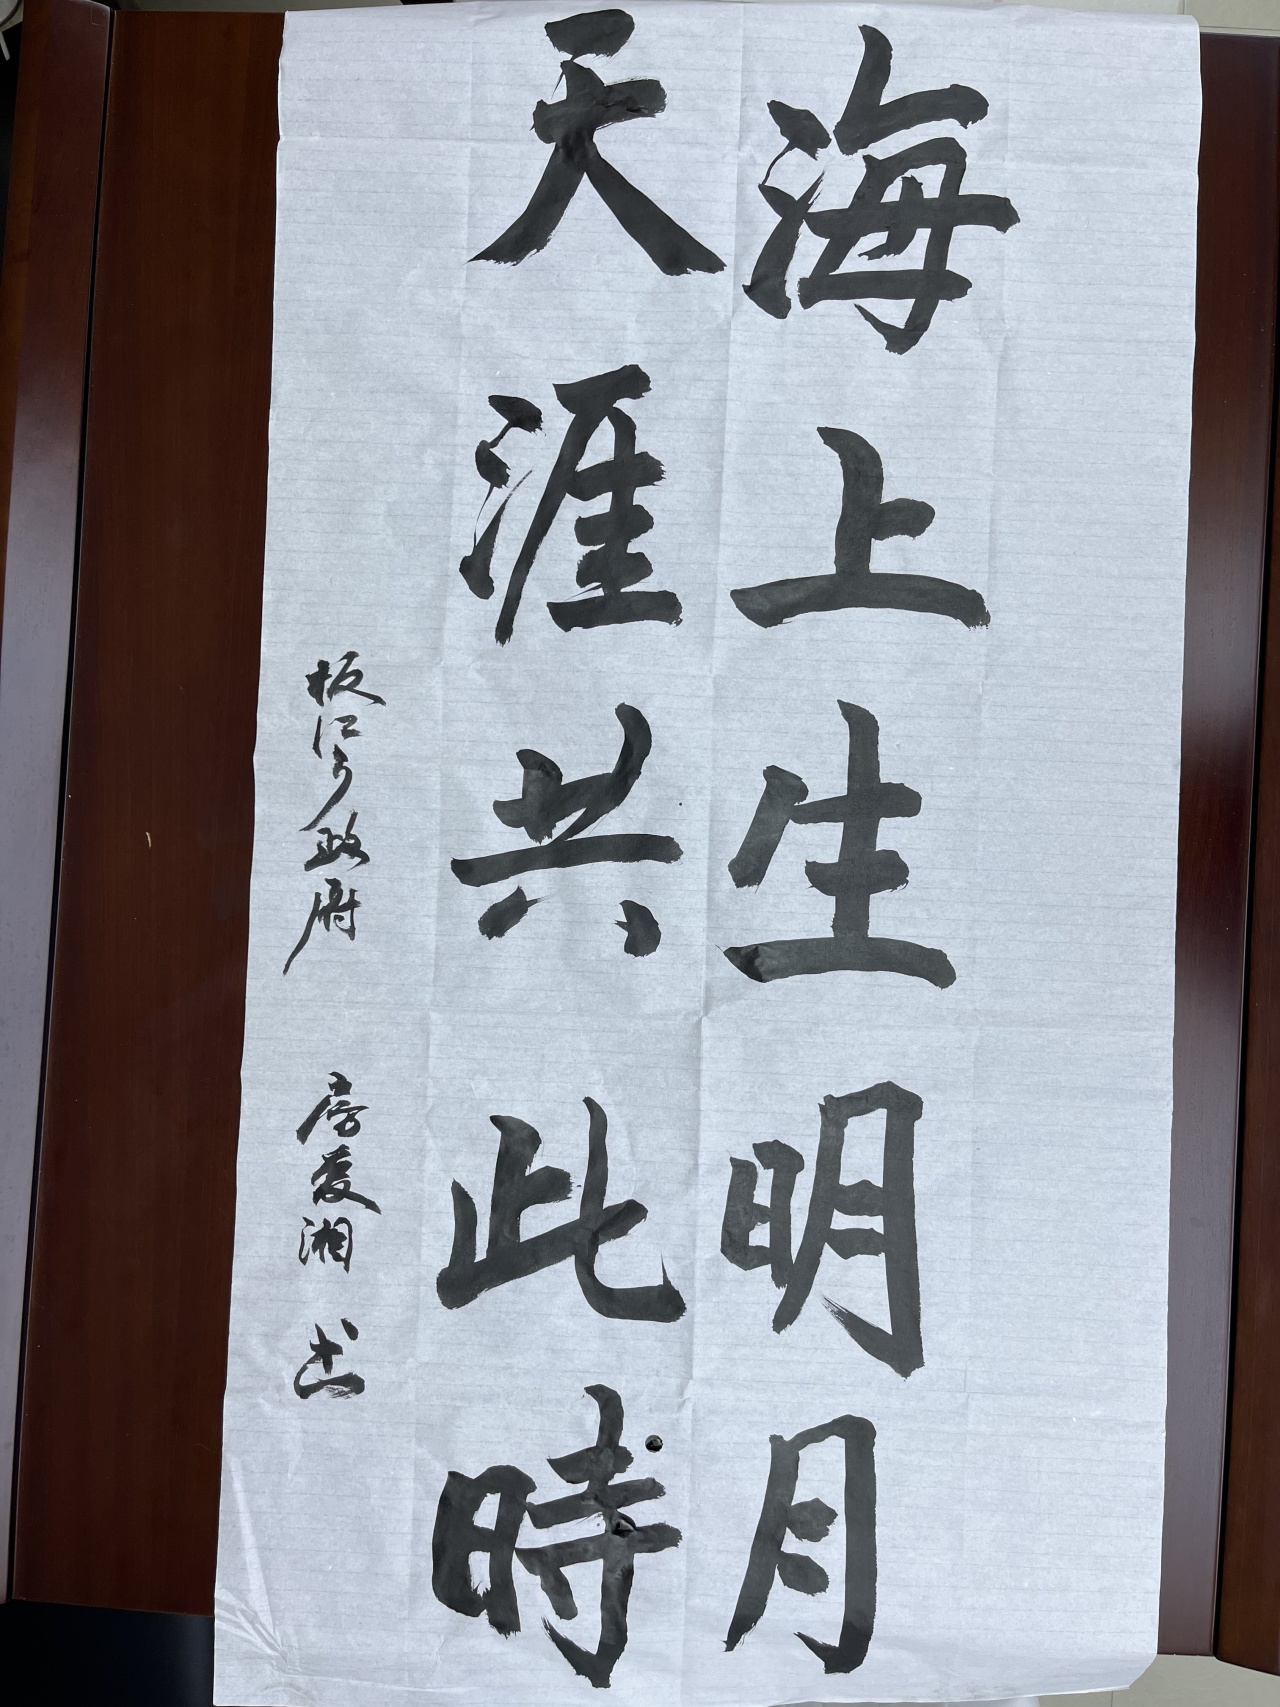 海上生明月
天涯共此時
板江乡政府 房爱湘 书